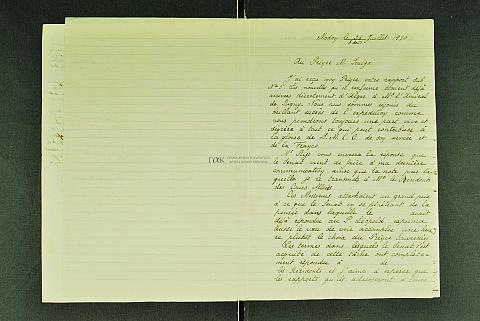 Modon le Juillet 1830
Au Prince M. Soutzo
J'ai reçu mon Prince votre rapport sub
N° 5. Les nouvelles qu'il renferme étaient déjà
arrivées directement d'Alger à Mr. l'Amiral
de Rigny. Nous nous sommes réjouis du
brillant succès de l'expédition comme
nous prendrons toujours une part vive et
sincère à tout ce qui peut contribuer à
la gloire de S.M.T.C. de son armée et
de la France.
Mr Rizo vous enverra la réponse que
le Sénat vient de faire à ma dernière
communication ainsi que la note par la
quelle je le transmets à Mrs les Résidents
des Cours Alliées.
Ces Messieurs attachaient un grand prix
à ce que le Sénat en se pénétrant de la
pensée dans laquelle le avait
déjà répondu au P. Léopold, exprima
aussi le vœu de voir accomplie une heu
re plutôt le choix du Prince Souverain.
Les termes dans lesquels le Sénat s'est
acquitté de cette tâche ont complète
ment répondu à de
les Résidents et j'aime à espérer que
les rapports qu'ils adresseront à leurs
ΓΑΚ